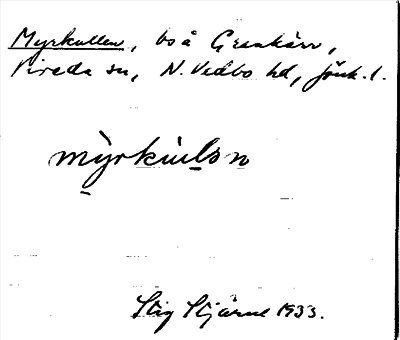 Myrkullen, bs å Grankärr,
Vireda sn, N. Vedbo hd, Jönk. l.
mỳrku̇lsn
Stig Stjärne 1933.